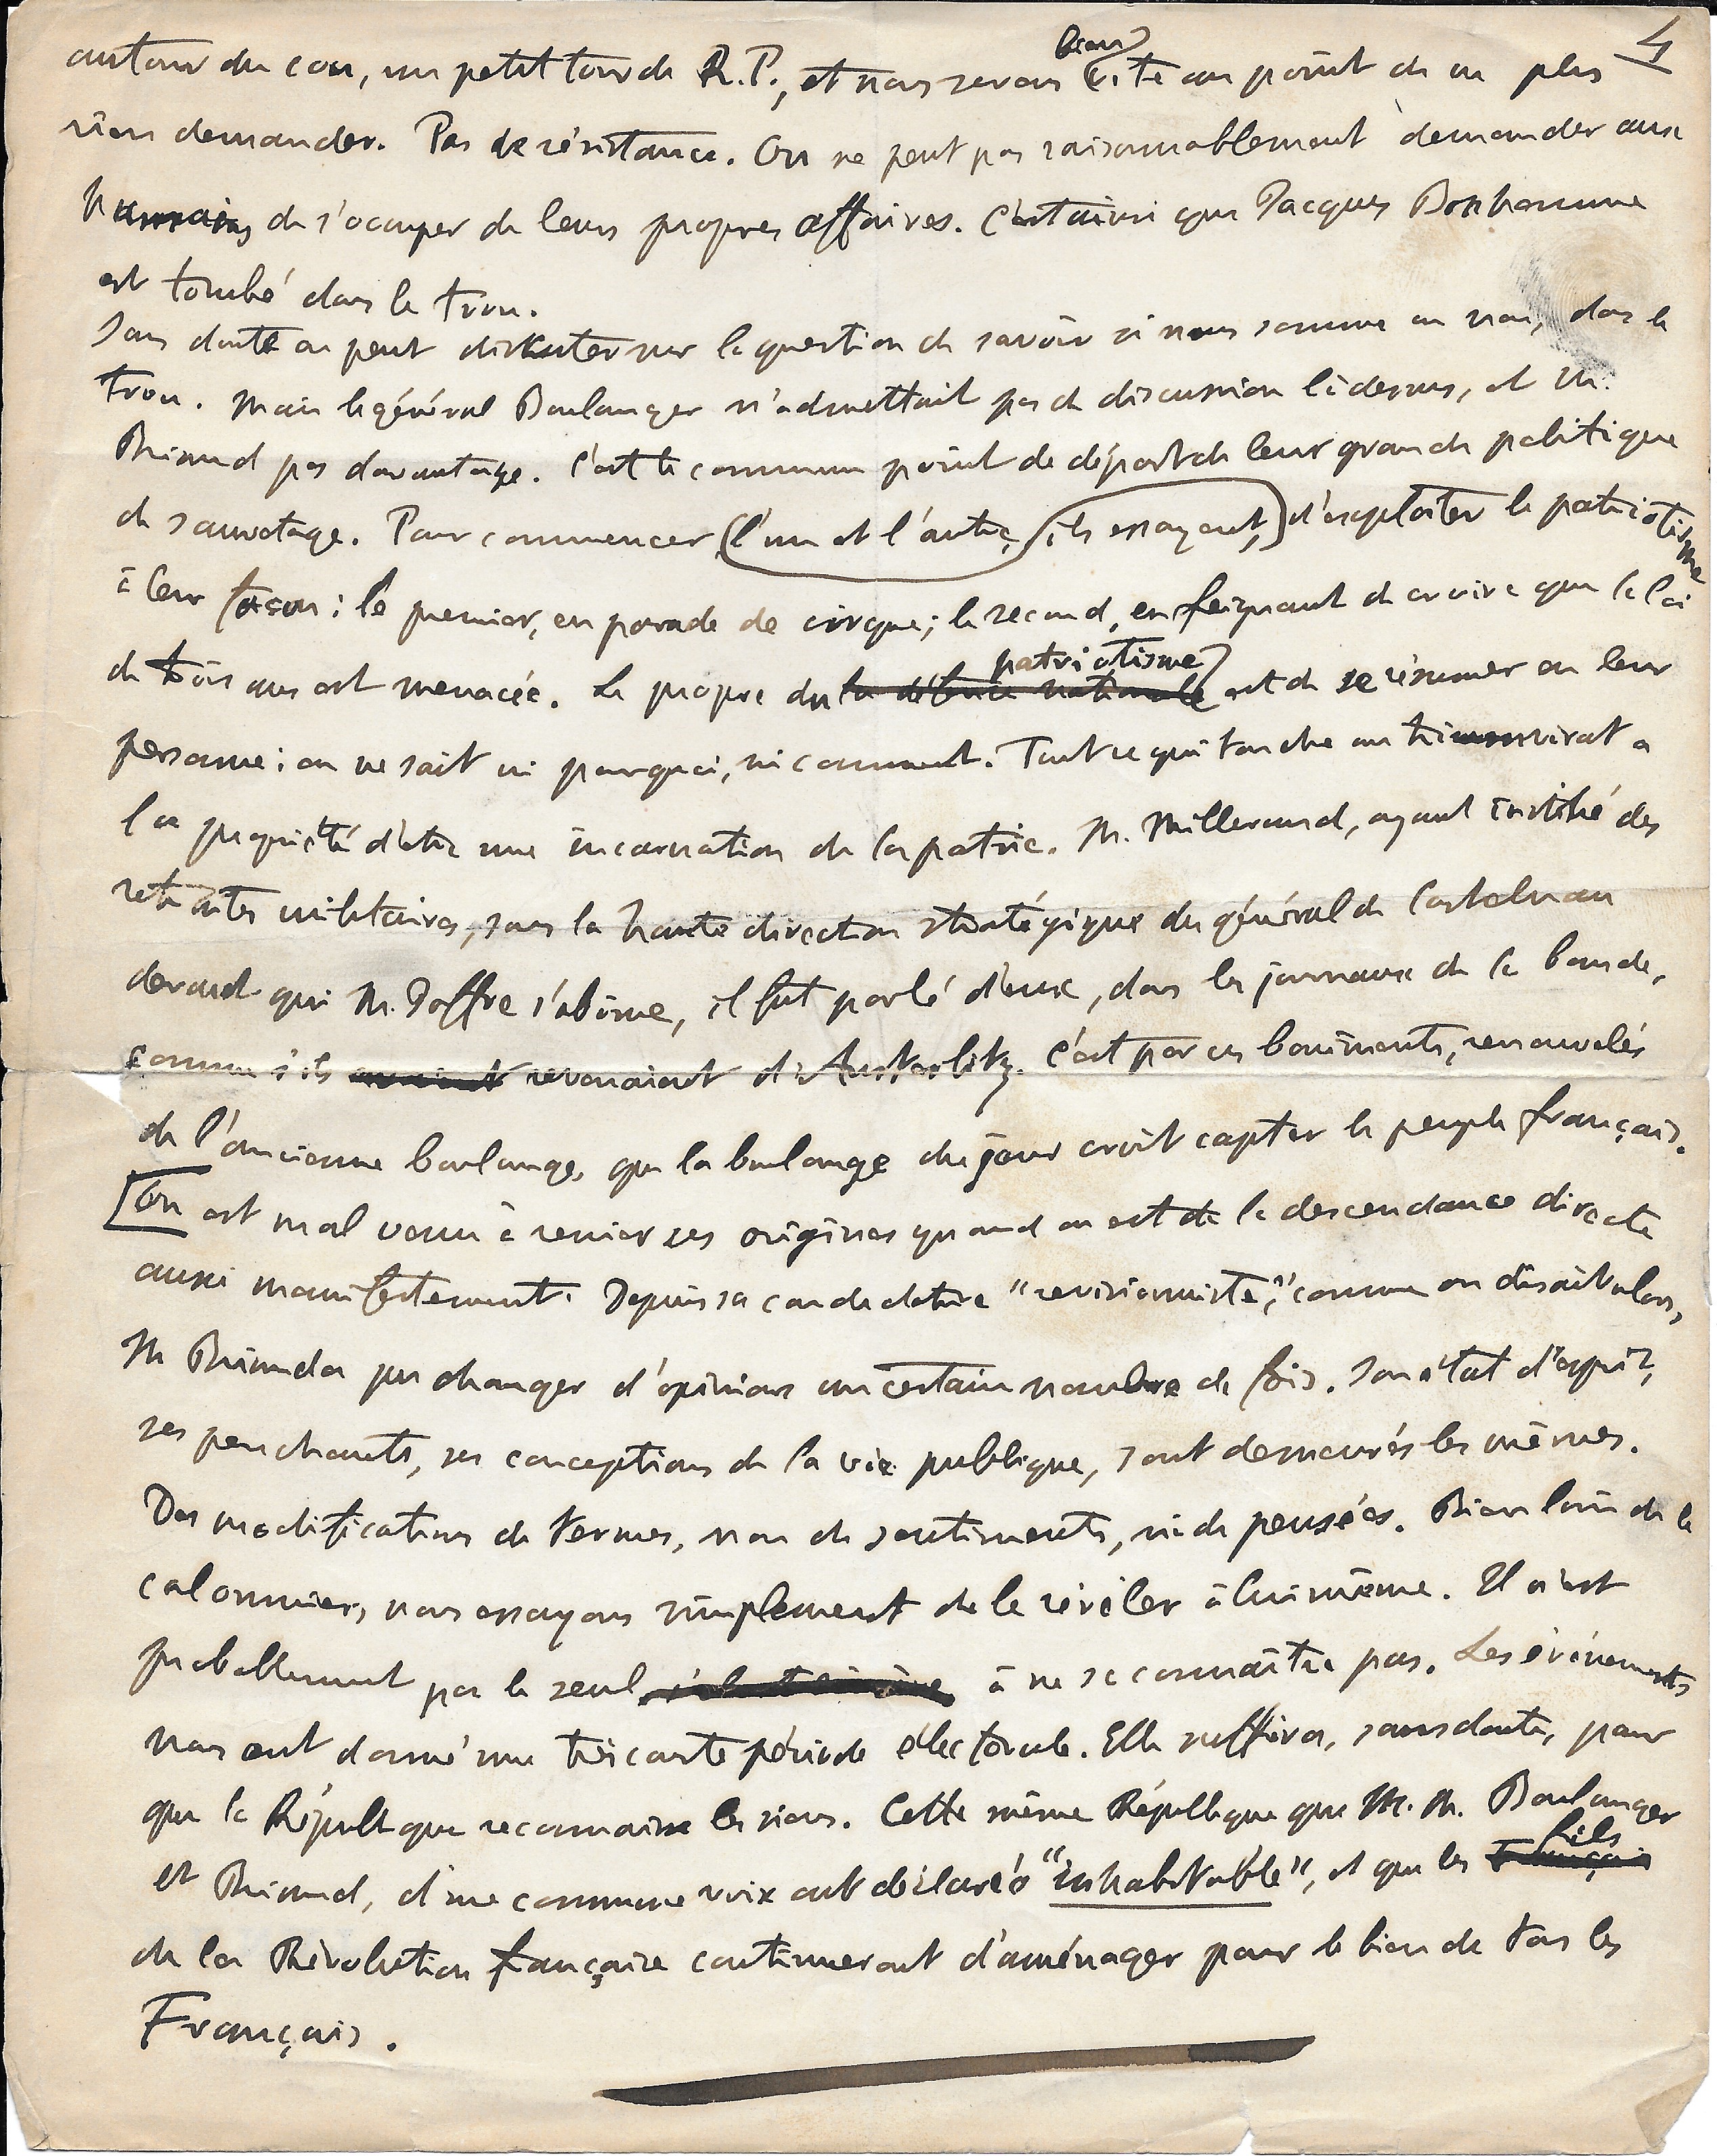 4
autour du cou, un petit tour de R.P., et nous serons bien vite au point de ne plus
rien demander. Pas de résistance. On ne peut pas raisonnablement demander aux
humains de s'occuper de leurs propres affaires. C'est ainsi que Jacques Bonhomme
est tombé dans le trou.
Sans doute on peut discuter sur la question de savoir si nous sommes ou non, dans le
trou. Mais le général Boulanger n'admettait pas de discussion là dessus, et M.
Briand pas davantage. C'est le commun point de départ de leur grande politique
de sauvetage. Pour commencer (l'un et l'autre, ils essayent,) d'exploiter le patriotisme
à leur façon : le premier, en parade de cirque ; le second, en feignant de croire que la loi
de trois ans est menacée. Le propre du la défense nationale patriotisme est de se résumer en leur
personne : on ne sait ni pourquoi, ni comment. Tout ce qui touche au triumvirat a
la propriété d'être une incarnation de la patrie. M. Millerand, ayant institué des
retraites militaires, sous la haute direction stratégique du général de Castelnau
devant qui M. Joffre s'abîme, il fut parlé d'eux, dans les journaux de la bande,
comme s'ils avaient revenaient d'Austerlitz. C'est par ces boniments, renouvelés
de l'ancienne boulange, que la boulange du jour croit capter le peuple français.
[On est mal venu à renier ses origines quand on est de la descendance directe
aussi manifestement. Depuis sa candidature "revisionniste", comme on disait alors,
M Briand a pu changer d'opinions un certain nombre de fois. Son état d'esprit,
ses penchants, ses conceptions de la vie publique, sont demeurés les mêmes.
Des modifications de termes, non de sentiments, ni de pensées. Bien loin de le
calomnier, nous essayons simplement de le révéler à lui même. Il n'est
probablement pas le seul à ne se connaître pas. Les événements
nous ont donné une très courte période électorale. Elle suffira, sans doute, pour
que la République reconnaisse les siens. Cette même République que M. M. Boulanger
et Briand, d'une commune voix ont déclarée "inhabitable", et que les Français fils
de la Révolution française continueront d'aménager pour le bien de tous les
Français.